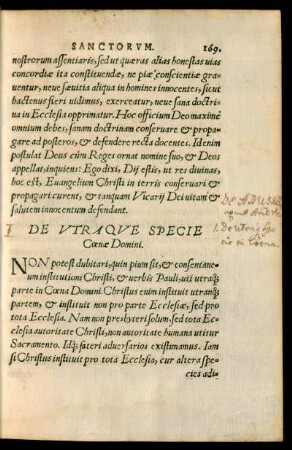 SANCTORVM. 169.
nostrorum assentiaris, sed ut quæras alias honestas uias
concordiæ ita constituendæ, ne piæ conscientiæ gra-
uentur, neue sæuitia aliqua in homines innocentes, sicut
hactenus fieri uidimus, exerceatur, neue sana doctri
na in Ecclesia opprimatur. Hoc officium Deo maxime
omnium debes, sanam doctrinam conseruare & propa-
gare ad posteros, & defendere recta docentes. Id enim
postulat Deus cùm Reges ornat nomine suo, & Deos
appellat, inquiens: Ego dixi, Dij estis, ut res diuinas,
hoc est, Euangelium Christi in terris conseruari &
propagari curent, & tanquam Vicarij Dei uitam &
salutem innocentum defendant.
DE VTRAQVE SPECIE
Cœnæ Domini.
NON potest dubitari, quin pium sit, & consentane-
um institutioni Christi, & uerbis Pauli, uti utraq;
parte in Cœna Domini Christus enim instituit utranq;
partem, & instituit non pro parte Ecclesiæ, sed pro
tota Ecclesia. Nam non presbyteri solum, sed tota Ec-
clesia autoritate Christi, non autoritate humana utitur
Sacramento. Idq; fateri aduersarios existimamus. Iam
si Christus instituit pro tota Ecclesia, cur altera spe-
cies adi-